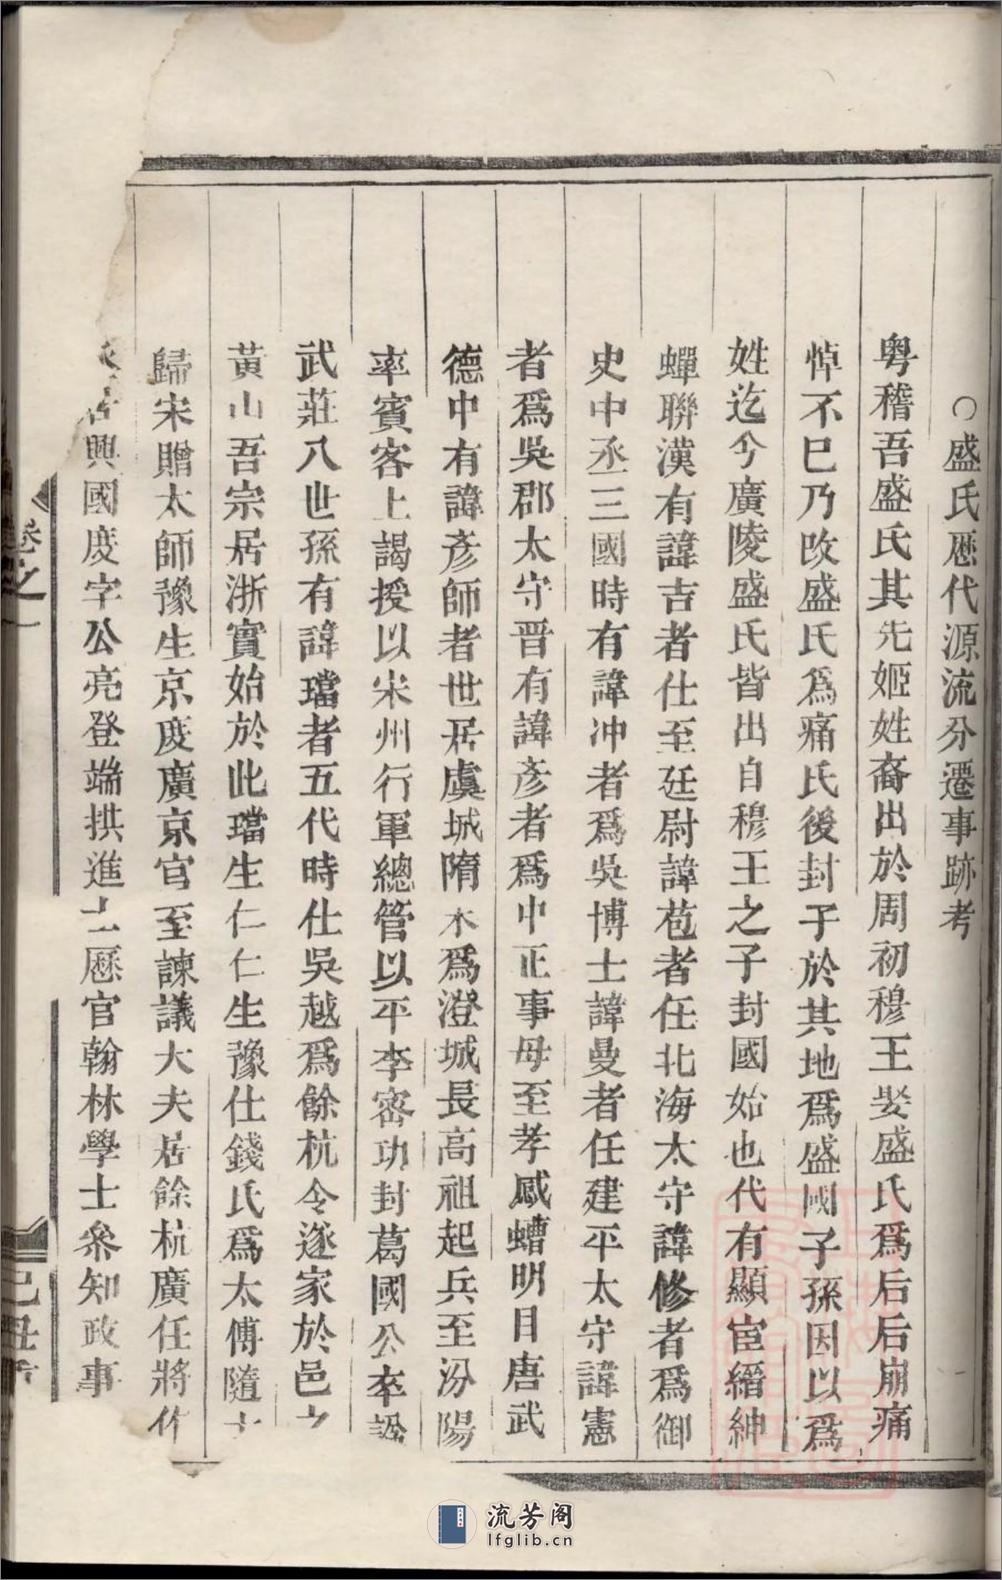 ○盛氏歷代源流分遷事跡考
粤稽吾盛氏其先姬姓裔出於周初穆王娶盛氏爲后后崩痛
悼不巳乃改盛氏爲痛氏後封子於其地爲盛國子孫因以爲
姓迄今廣陵盛氏皆出自穆王之子封國始也代有顯宦縉紳
蟬聯漢有諱吉者仕至廷尉諱苞者任北海太守諱修者爲御
史中丞三國時有諱冲者爲吳博士諱曼者任建平太守諱憲
者爲吳郡太守晋有諱彥者爲中正事母至孝感螬明目唐武
德中有諱彥師者世居虞城隋末爲澄城長高祖起兵至汾陽
率賓客上謁授以宋州行軍總管以平李密功封葛國公卒諡
武莊八世孫有諱璫者五代時仕吳越爲餘杭令遂家於邑之
黃山吾宗居浙實始於此璫生仁仁生豫仕錢氏爲太傅隨
歸宋贈太師豫生京度廣京官至諫議大夫居餘杭廣任將作
居興國度字公亮登端拱進士歷官翰林學士叅知政事
卷之一
己丑
流芳阁
lfglib.cn